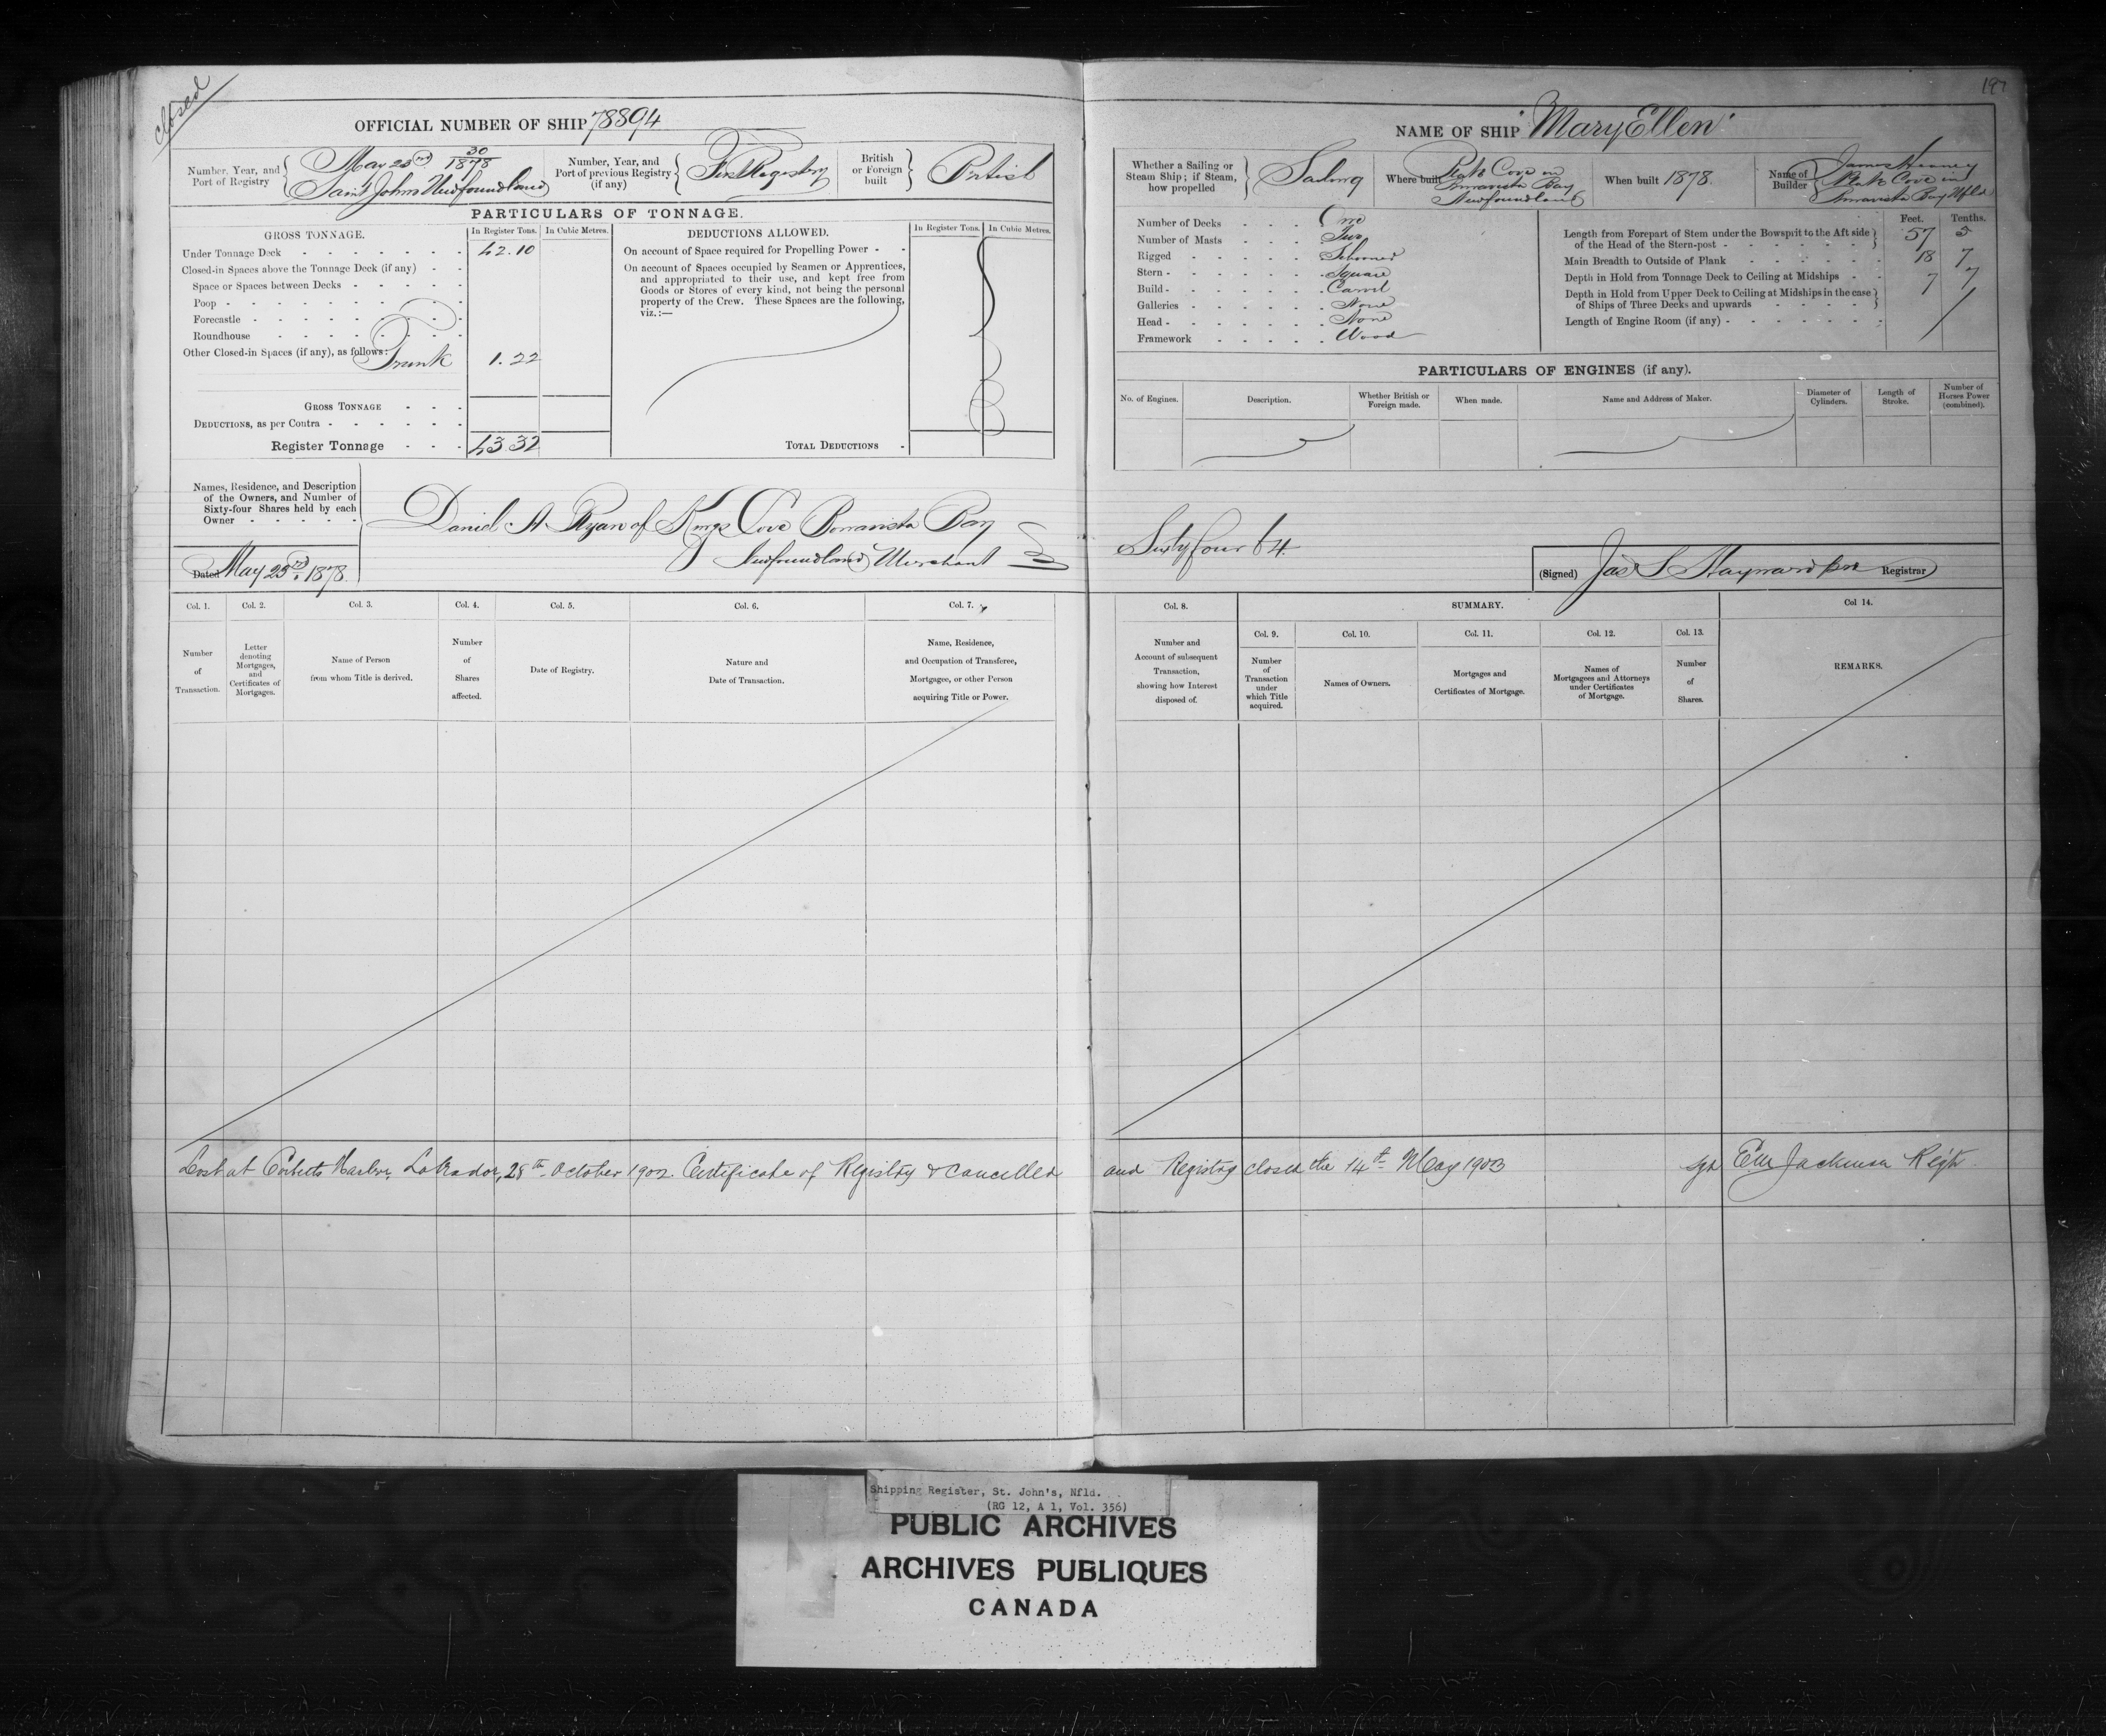 closed
197
OFFICIAL NUMBER OF SHIP 78894
Number, Year, and
Port of Registry
May 23rd 30/1878
Saint Johns Newfoundland
Number, Year, and
Port of previous Registry
(if any)
First Registry
British
or Foreign
built
British
PARTICULARS OF TONNAGE.
GROSS TONNAGE.
In Register Tons.
In Cubic Metres.
Under Tonnage Deck 42.10
Closed-in Spaces above the Tonnage Deck (if any)
Space or Spaces between Decks
Poop
Forecastle
Roundhouse
Other Closed-in Spaces (if any), as follows:
Trunk 1.22
GROSS TONNAGE
DEDUCTIONS, as per Contra
Register Tonnage 43.32
DEDUCTIONS ALLOWED.
In Register Tons.
In Cubic Metres.
On account of Space required for Propelling Power
On account of Spaces occupied by Seamen or Apprentices,
and appropriated to their use, and kept free from
Goods or Stores of every kind, not being the personal
property of the Crew. These Spaces are the following,
viz.:—
TOTAL DEDUCTIONS
NAME OF SHIP "Mary Ellen"
Whether a Sailing or
Steam Ship; if Steam,
how propelled
Sailing
Where built
Plate Cove in
Bonavista Bay
Newfoundland
When built 1878.
Name of
Builder
James
Plate Cove in
Bonavista Bay Nfld
Number of Decks One
Number of Masts Two
Rigged Schooner
Stern Square
Build Carvel
Galleries None
Head None
Framework Wood
Feet. Tenths.
Length from Forepart of Stem under the Bowsprit to the Aft side
of the Head of the Stern-post 57 5
Main Breadth to Outside of Plank 18 7
Depth in Hold from Tonnage Deck to Ceiling at Midships 7 7
Depth in Hold from Upper Deck to Ceiling at Midships in the case
of Ships of Three Decks and upwards
Length of Engine Room (if any)
PARTICULARS OF ENGINES (if any).
No. of Engines.
Description.
Whether British or
Foreign made.
When made.
Name and Address of Maker.
Diameter of
Cylinders.
Length of
Stroke.
Number of
Horses Power
(combined).
Names, Residence, and Description
of the Owners, and Number of
Sixty-four Shares held by each
Owner
Dated May 23rd 1878.
Daniel A Ryan of Kings Cove Bonavista Bay
Newfoundland Merchant
Sixty four 64
(Signed) Jas S Hayward Registrar
Col. 1.
Number
of
Transaction.
Col. 2.
Letter
denoting
Mortgages,
and
Certificates of
Mortgages.
Col. 3.
Name of Person
from whom Title is derived.
Col. 4.
Number
of
Shares
affected.
Col. 5.
Date of Registry.
Col. 6.
Nature and
Date of Transaction.
Col. 7.
Name, Residence,
and Occupation of Transferee,
Mortgagee, or other Person
acquiring Title or Power.
Col. 8.
Number and
Account of subsequent
Transaction,
showing how Interest
disposed of.
SUMMARY.
Col. 9.
Number
of
Transaction
under
which Title
acquired.
Col. 10.
Names of Owners.
Col. 11.
Mortgages and
Certificates of Mortgage.
Col. 12.
Names of
Mortgagees and Attorneys
under Certificates
of Mortgage.
Col. 13.
Number
of
Shares.
Col 14.
REMARKS.
Lost at Harbor, Labrador, 28th October 1902. Certificate of Registry & cancelled and Registry closed the 14th May 1903 sgd Jackman Regr
Shipping Register, St. John's, Nfld.
(RG 12, A 1, Vol. 356)
PUBLIC ARCHIVES
ARCHIVES PUBLIQUES
CANADA